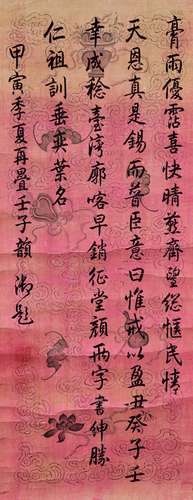 膏雨優霑喜快晴慰齊望總愜民情
天恩真是錫而普臣意曰惟戒以盈丑癸子壬
幸成稔臺灣廓喀早銷征堂顏兩字書紳勝
仁祖訓垂奕葉名
甲寅季夏再疊壬子韻 御題